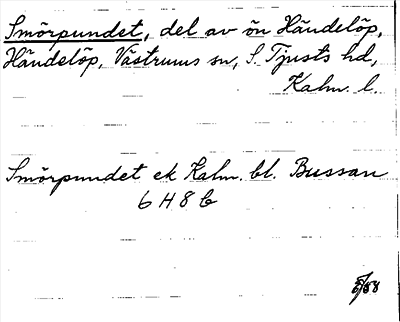 Smörpundet, del av ön Händelöp,
Händelöp, Västrums sn, S. Tjusts hd,
Kalm. l.
Smörpundet ek Kalm. bl. Bussan
6 H 8 b